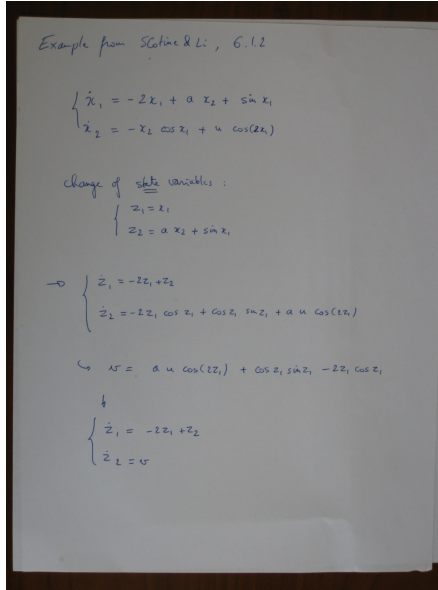 Example from Slotine & Li, 6.1.2
ẋ₁ = -2x₁ + a x₂ + sin x₁
ẋ₂ = -x₂ cos x₁ + u cos(2x₁)
change of state variables :
z₁ = x₁
z₂ = a x₂ + sin x₁
→ ż₁ = -2z₁ + z₂
ż₂ = -2z₁ cos z₁ + cos z₁ sin z₁ + a u cos(2z₁)
↳ v = a u cos(2z₁) + cos z₁ sin z₁ - 2z₁ cos z₁
↓
ż₁ = -2z₁ + z₂
ż₂ = v